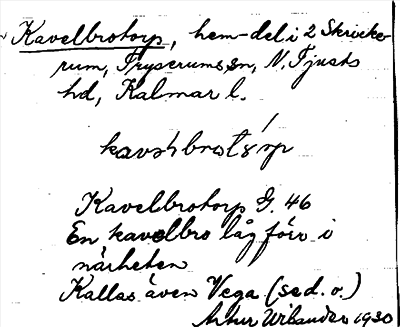 Kavelbrotorp, hem-del i 2 Skricke-
rum, Tryserums sn, N. Tjusts
hd, Kalmar l.
Kavelbrotorp G. 46
En kavelbro låg förr i
närheten
Kallas även Vega (se d. o.)
Artur Wibander 1930